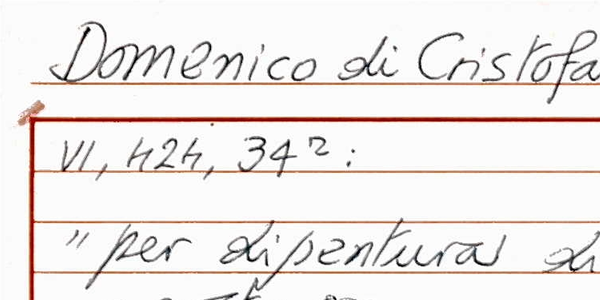 Domenico di Cristofa
VI, 424, 34²:
" per dipentura di